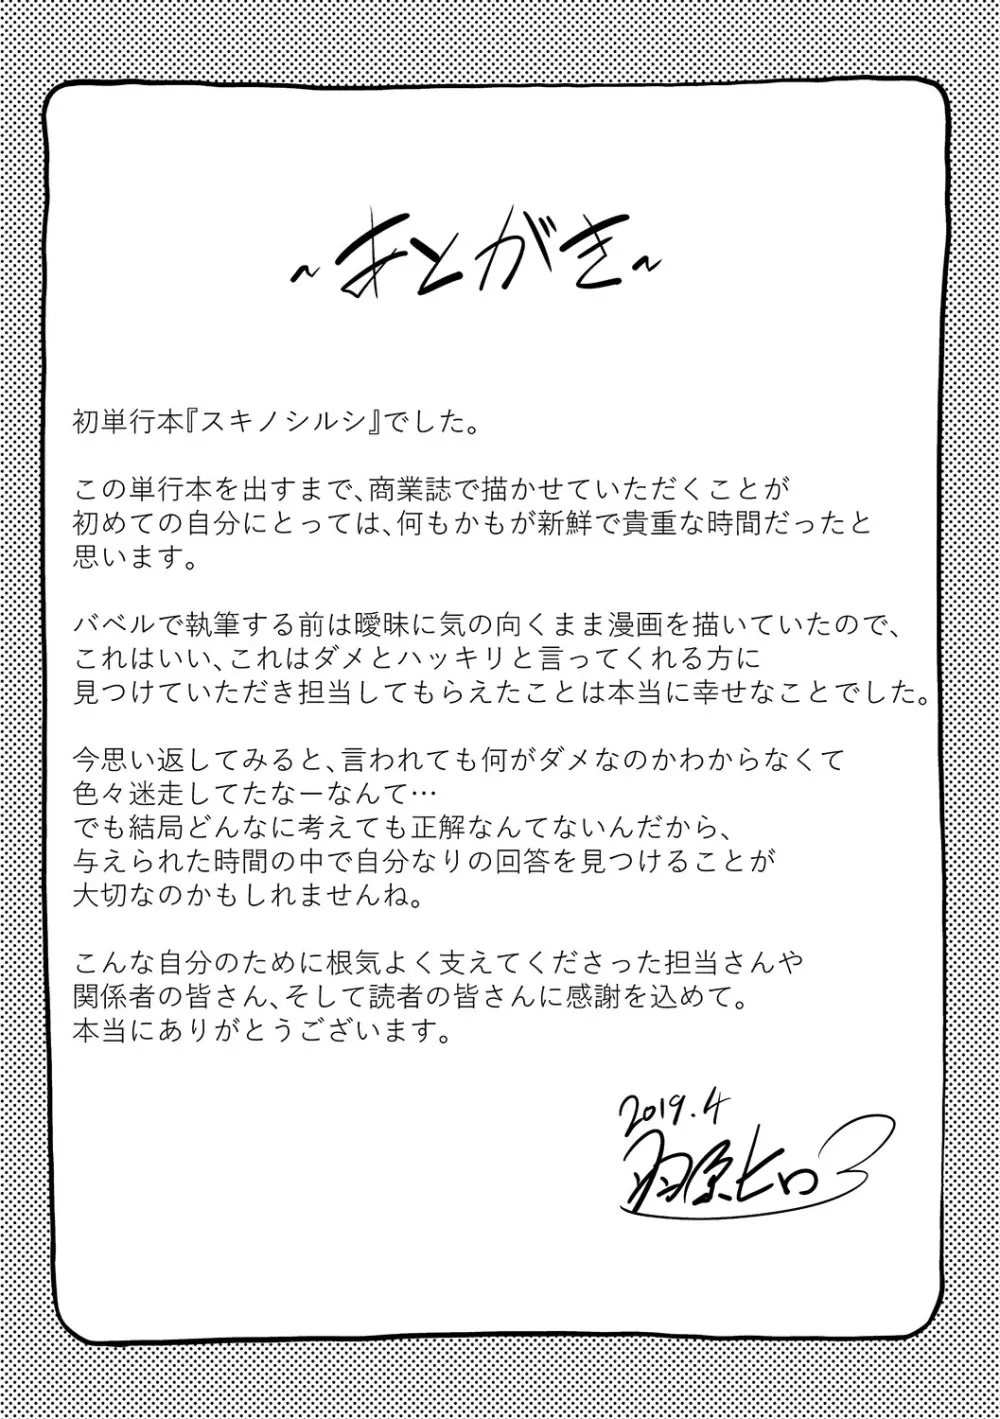 ～あとがき～
初単行本『スキノシルシ』でした。
この単行本を出すまで、商業誌で描かせていただくことが
初めての自分にとっては、何もかもが新鮮で貴重な時間だったと
思います。
バベルで執筆する前は曖昧に気の向くまま漫画を描いていたので、
これはいい、これはダメとハッキリと言ってくれる方に
見つけていただき担当してもらえたことは本当に幸せなことでした。
今思い返してみると、言われても何がダメなのかわからなくて
色々迷走してたなーなんて…
でも結局どんなに考えても正解なんてないんだから、
与えられた時間の中で自分なりの回答を見つけることが
大切なのかもしれませんね。
こんな自分のために根気よく支えてくださった担当さんや
関係者の皆さん、そして読者の皆さんに感謝を込めて。
本当にありがとうございます。
2019.4
羽原ヒロ